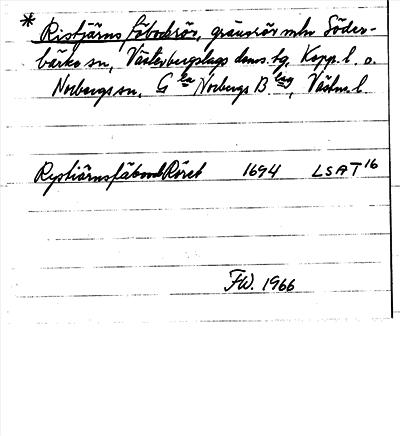 * Ristjärns fäbodrör, gränsrör mln Söder-
bärke sn, Västerbergslags doms. tg, Kopp. l. o.
Norbergs sn, G:la Norbergs Blag, Västm. l.
Rystiärnsfäbod Röret 1694 LSA T16
FW. 1966